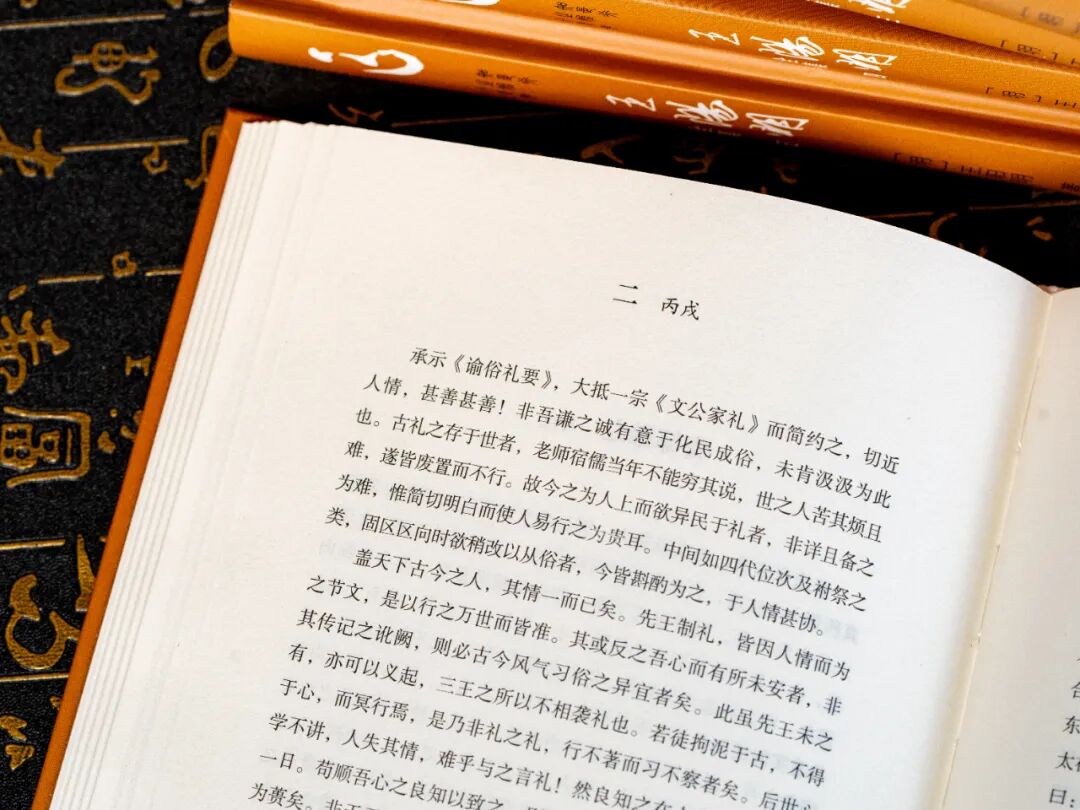 王陽明
王陽明
二 丙戌
承示《谕俗礼要》，大抵一宗《文公家礼》而简约之，切近
人情，甚善甚善！非吾谦之诚有意于化民成俗，未肯汲汲为此
也。古礼之存于世者，老师宿儒当年不能穷其说，世之人苦其烦且
难，遂皆废置而不行。故今之为人上而欲异民于礼者，非详且备之
为难，惟简切明白而使人易行之为贵耳。中间如四代位次及祔祭之
类，固区区向时欲稍改以从俗者，今皆斟酌为之，于人情甚协。
盖天下古今之人，其情一而已矣。先王制礼，皆因人情而为
之节文，是以行之万世而皆准。其或反之吾心而有所未安者，非
其传记之讹阙，则必古今风气习俗之异宜者矣。此虽先王未之
有，亦可以义起，三王之所以不相袭礼也。若徒拘泥于古，不得
于心，而冥行焉，是乃非礼之礼，行不著而习不察者矣。后世心
学不讲，人失其情，难乎与之言礼！然良知之在
一日。苟顺吾心之良知以致之，
为贵矣。非天
东
太
曰：